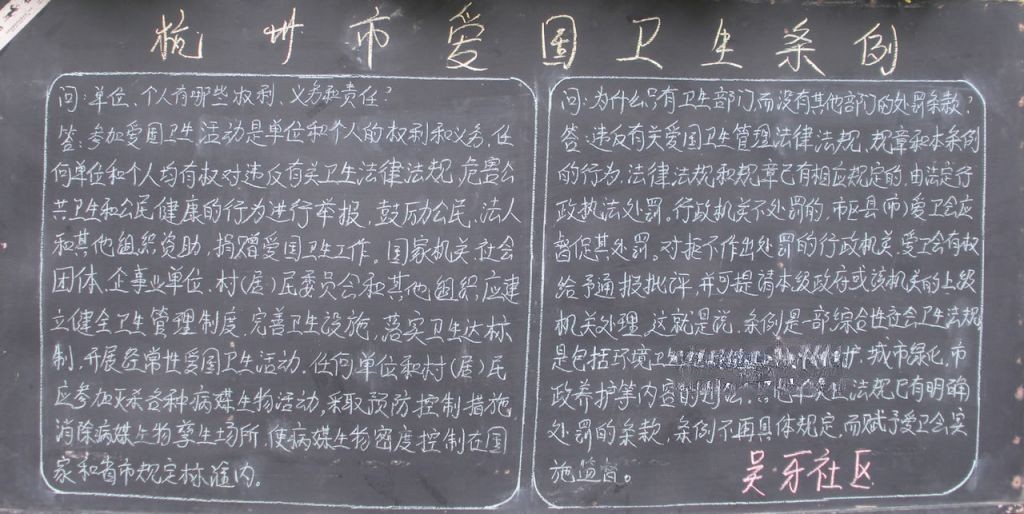 杭州市爱国卫生条例
问:单位、个人有哪些权利、义务和责任?
答:参加爱国卫生活动是单位和个人的权利和义务,任
何单位和个人均有权对违反有关卫生法律法规,危害公
共卫生和公民健康的行为进行举报,鼓励公民、法人
和其他组织资助、捐赠爱国卫生工作。国家机关、社会
团体、企事业单位、村(居)民委员会和其他组织,应建
立健全卫生管理制度,完善卫生设施,落实卫生达标
制,开展经常性爱国卫生活动。任何单位和村(居)民
应参加灭杀各种病媒生物活动,采取预防控制措施,
消除病媒生物孳生场所,使病媒生物密度控制在国
家和省市规定标准内。
问:为什么只有卫生部门而没有其他部门的处罚条款?
答:违反有关爱国卫生管理法律法规,规章和本条例
的行为,法律法规和规章已有相应规定的,由法定行
政执法处罚。行政机关不处罚的,市区县(市)爱卫会应
督促其处罚。对拒不作出处罚的行政机关,爱卫会有权
给予通报批评,并可提请本级政府或该机关的上级
机关处理。这就是说,条例是一部综合性社会卫生法规
是包括环境卫生 护、城市绿化、市
政养护等内容的 法规已有明确
处罚的条款,条例不再具体规定,而赋予爱卫会实
施监督。
吴牙社区